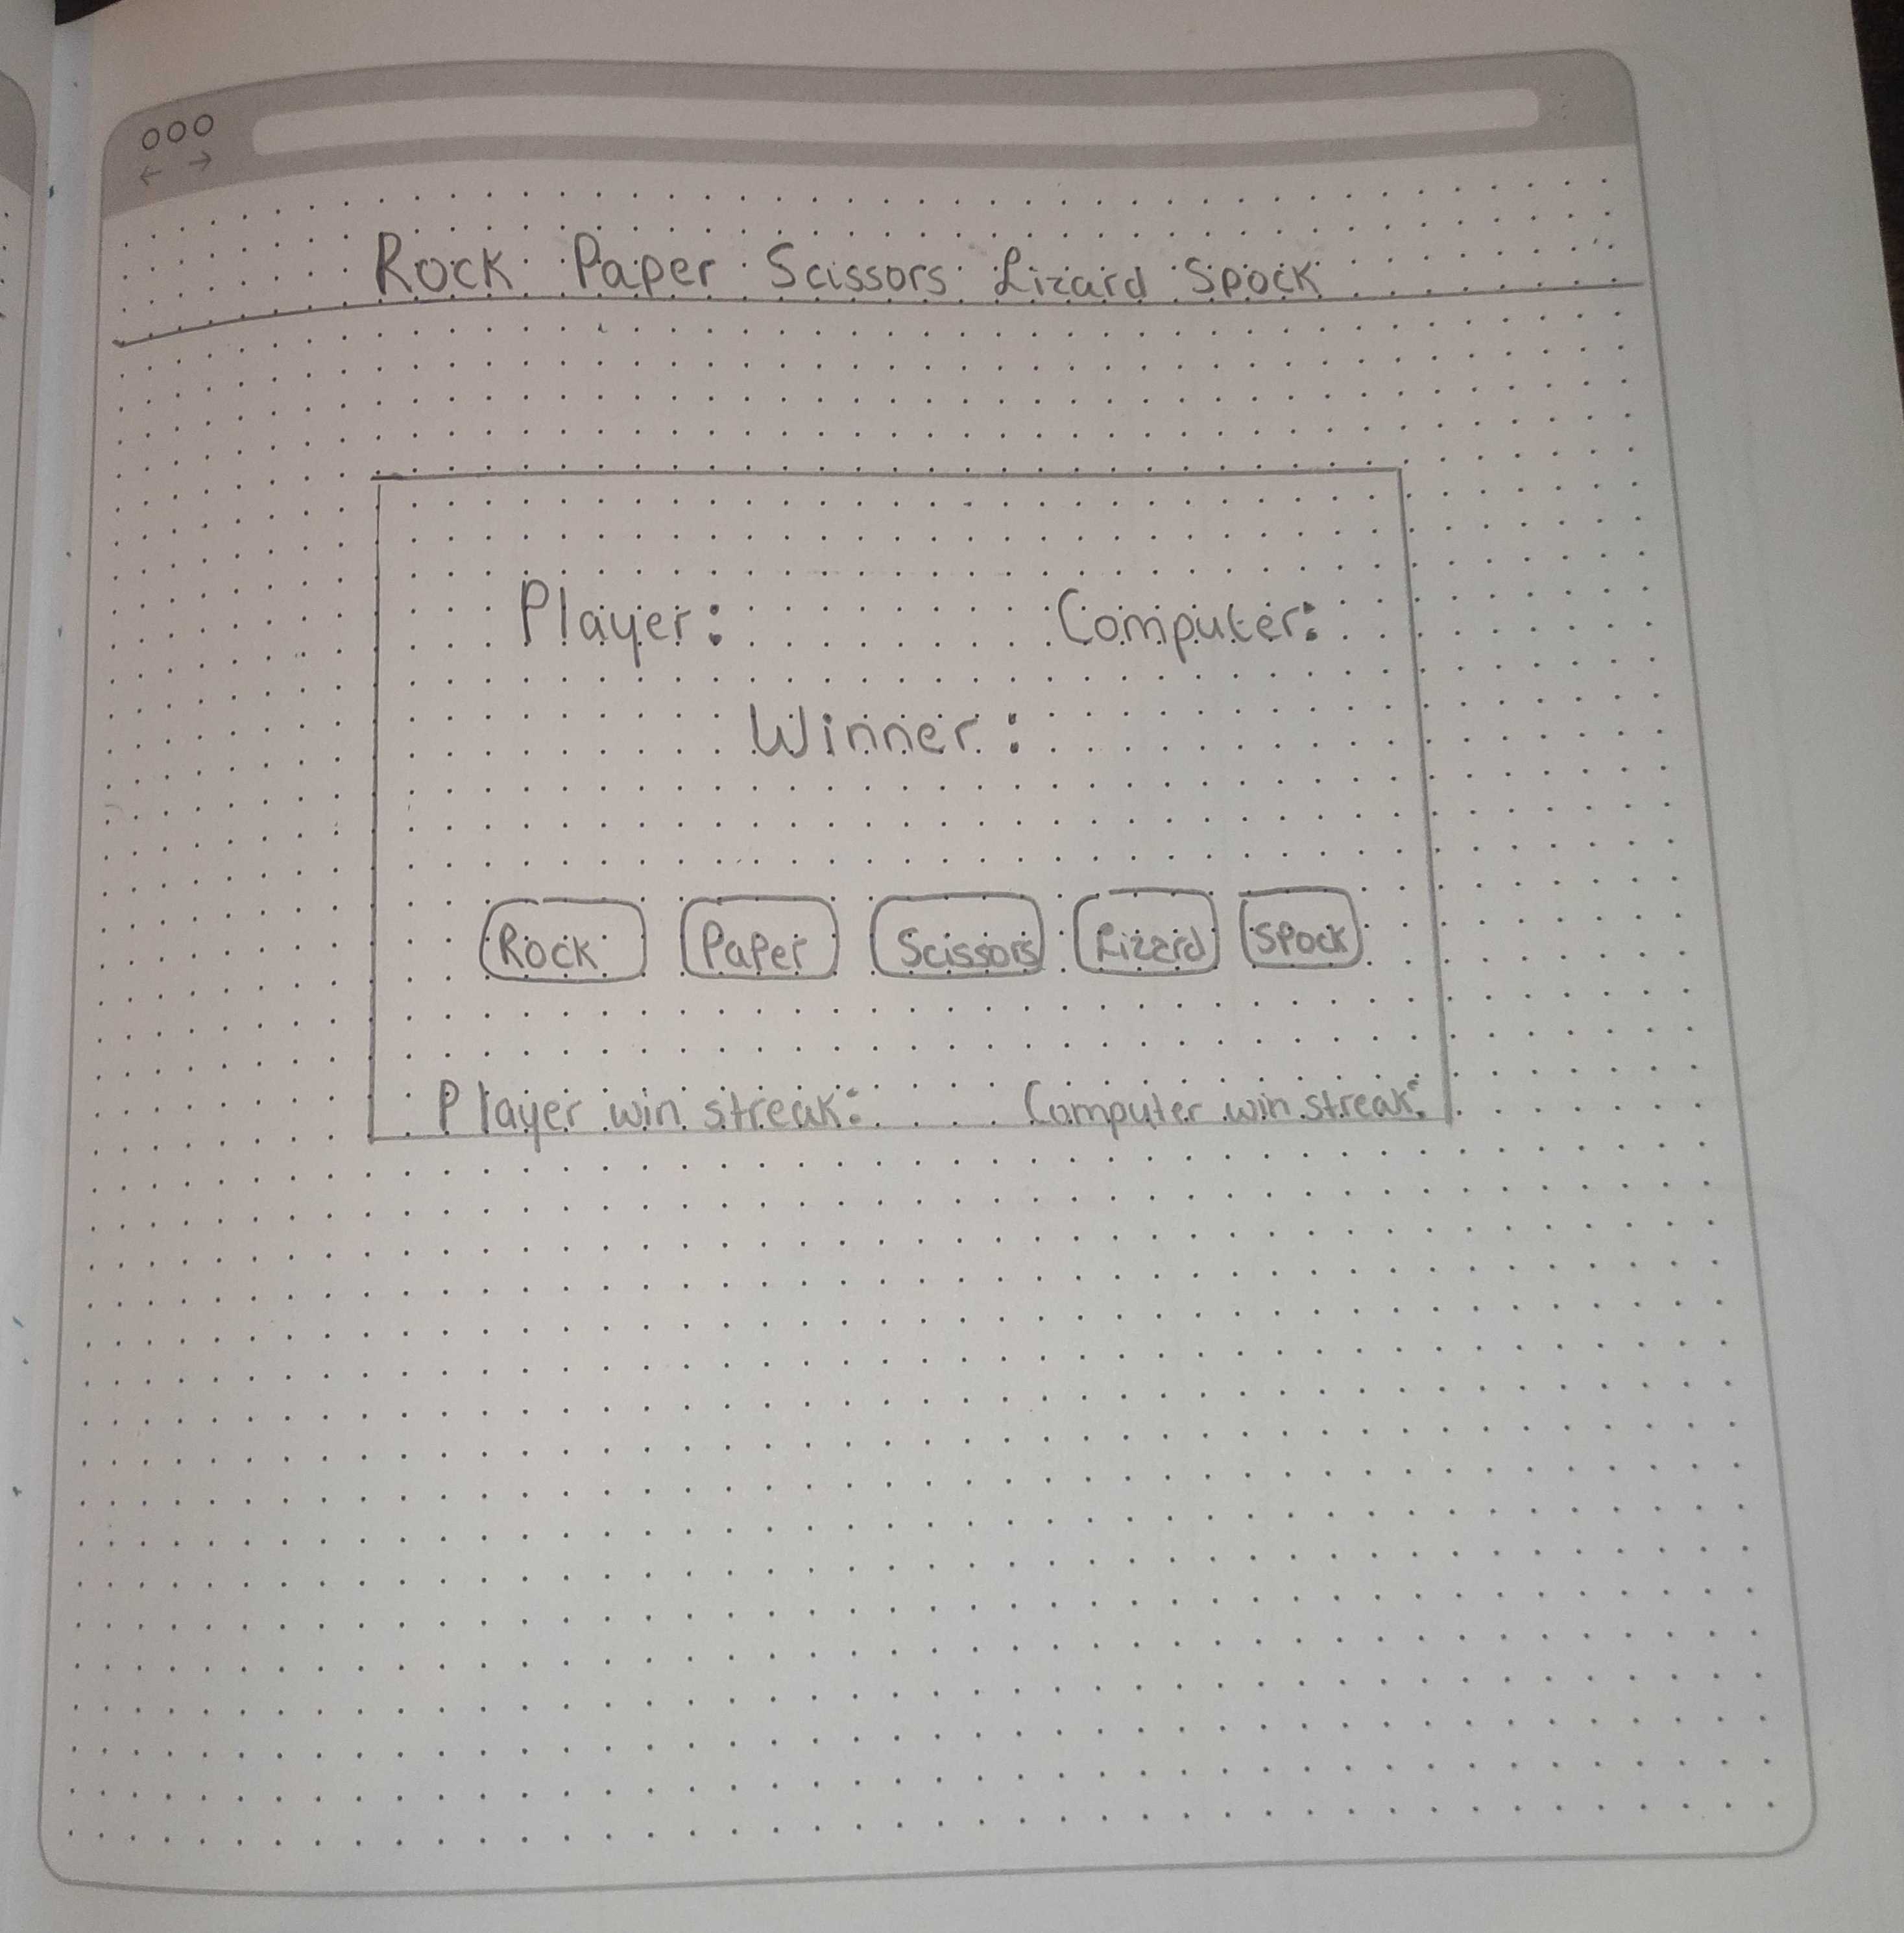 Rock Paper Scissors Lizard Spock
Player: Computer:
Winner:
Rock Paper Scissors Lizard Spock
Player win streak: Computer win streak: